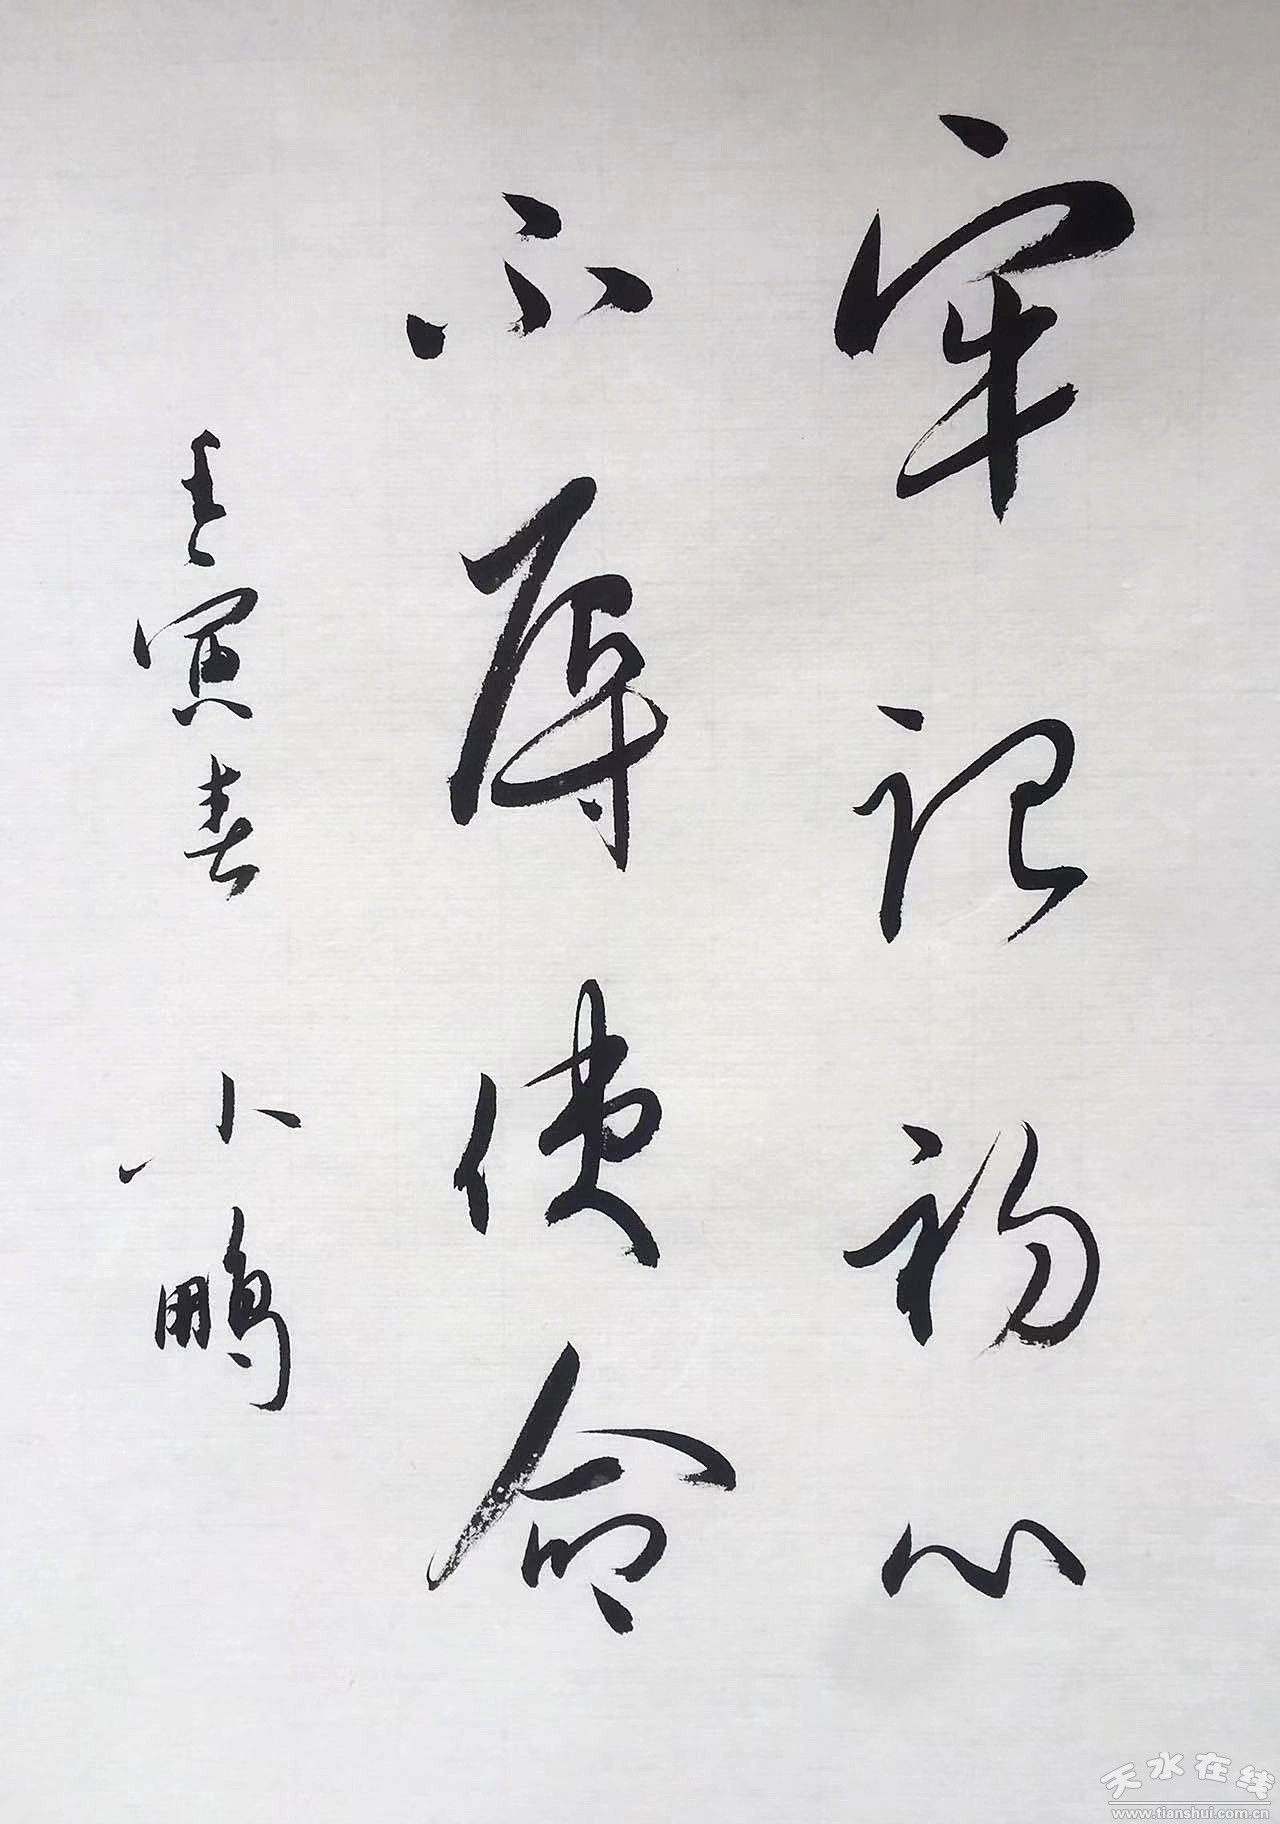 牢记初心
不辱使命
壬寅春 小鹏
天水在线
www.tianshui.com.cn